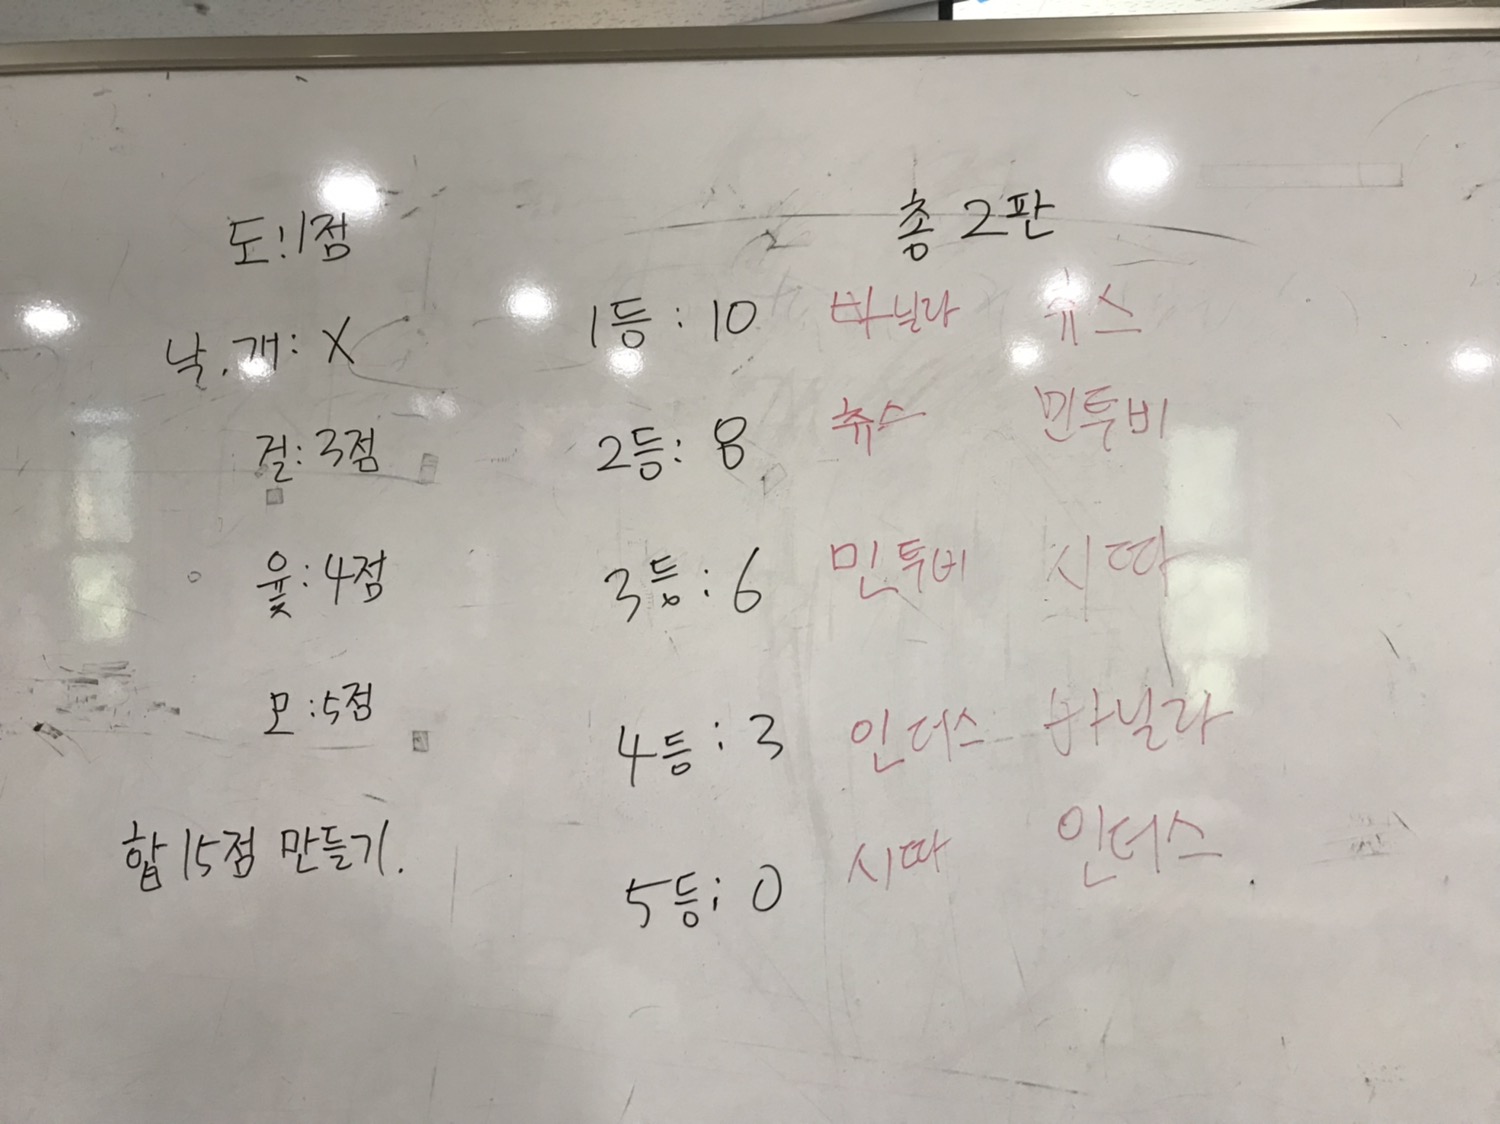 도:1점
낙.개: X
걸:3점
윷:4점
모:5점
합 15점 만들기.
총 2판
1등: 10 바닐라 쥬스
2등: 8 쥬스 민투비
3등: 6 민투비 시따
4등: 3 인더스 바닐라
5등: 0 시따 인더스